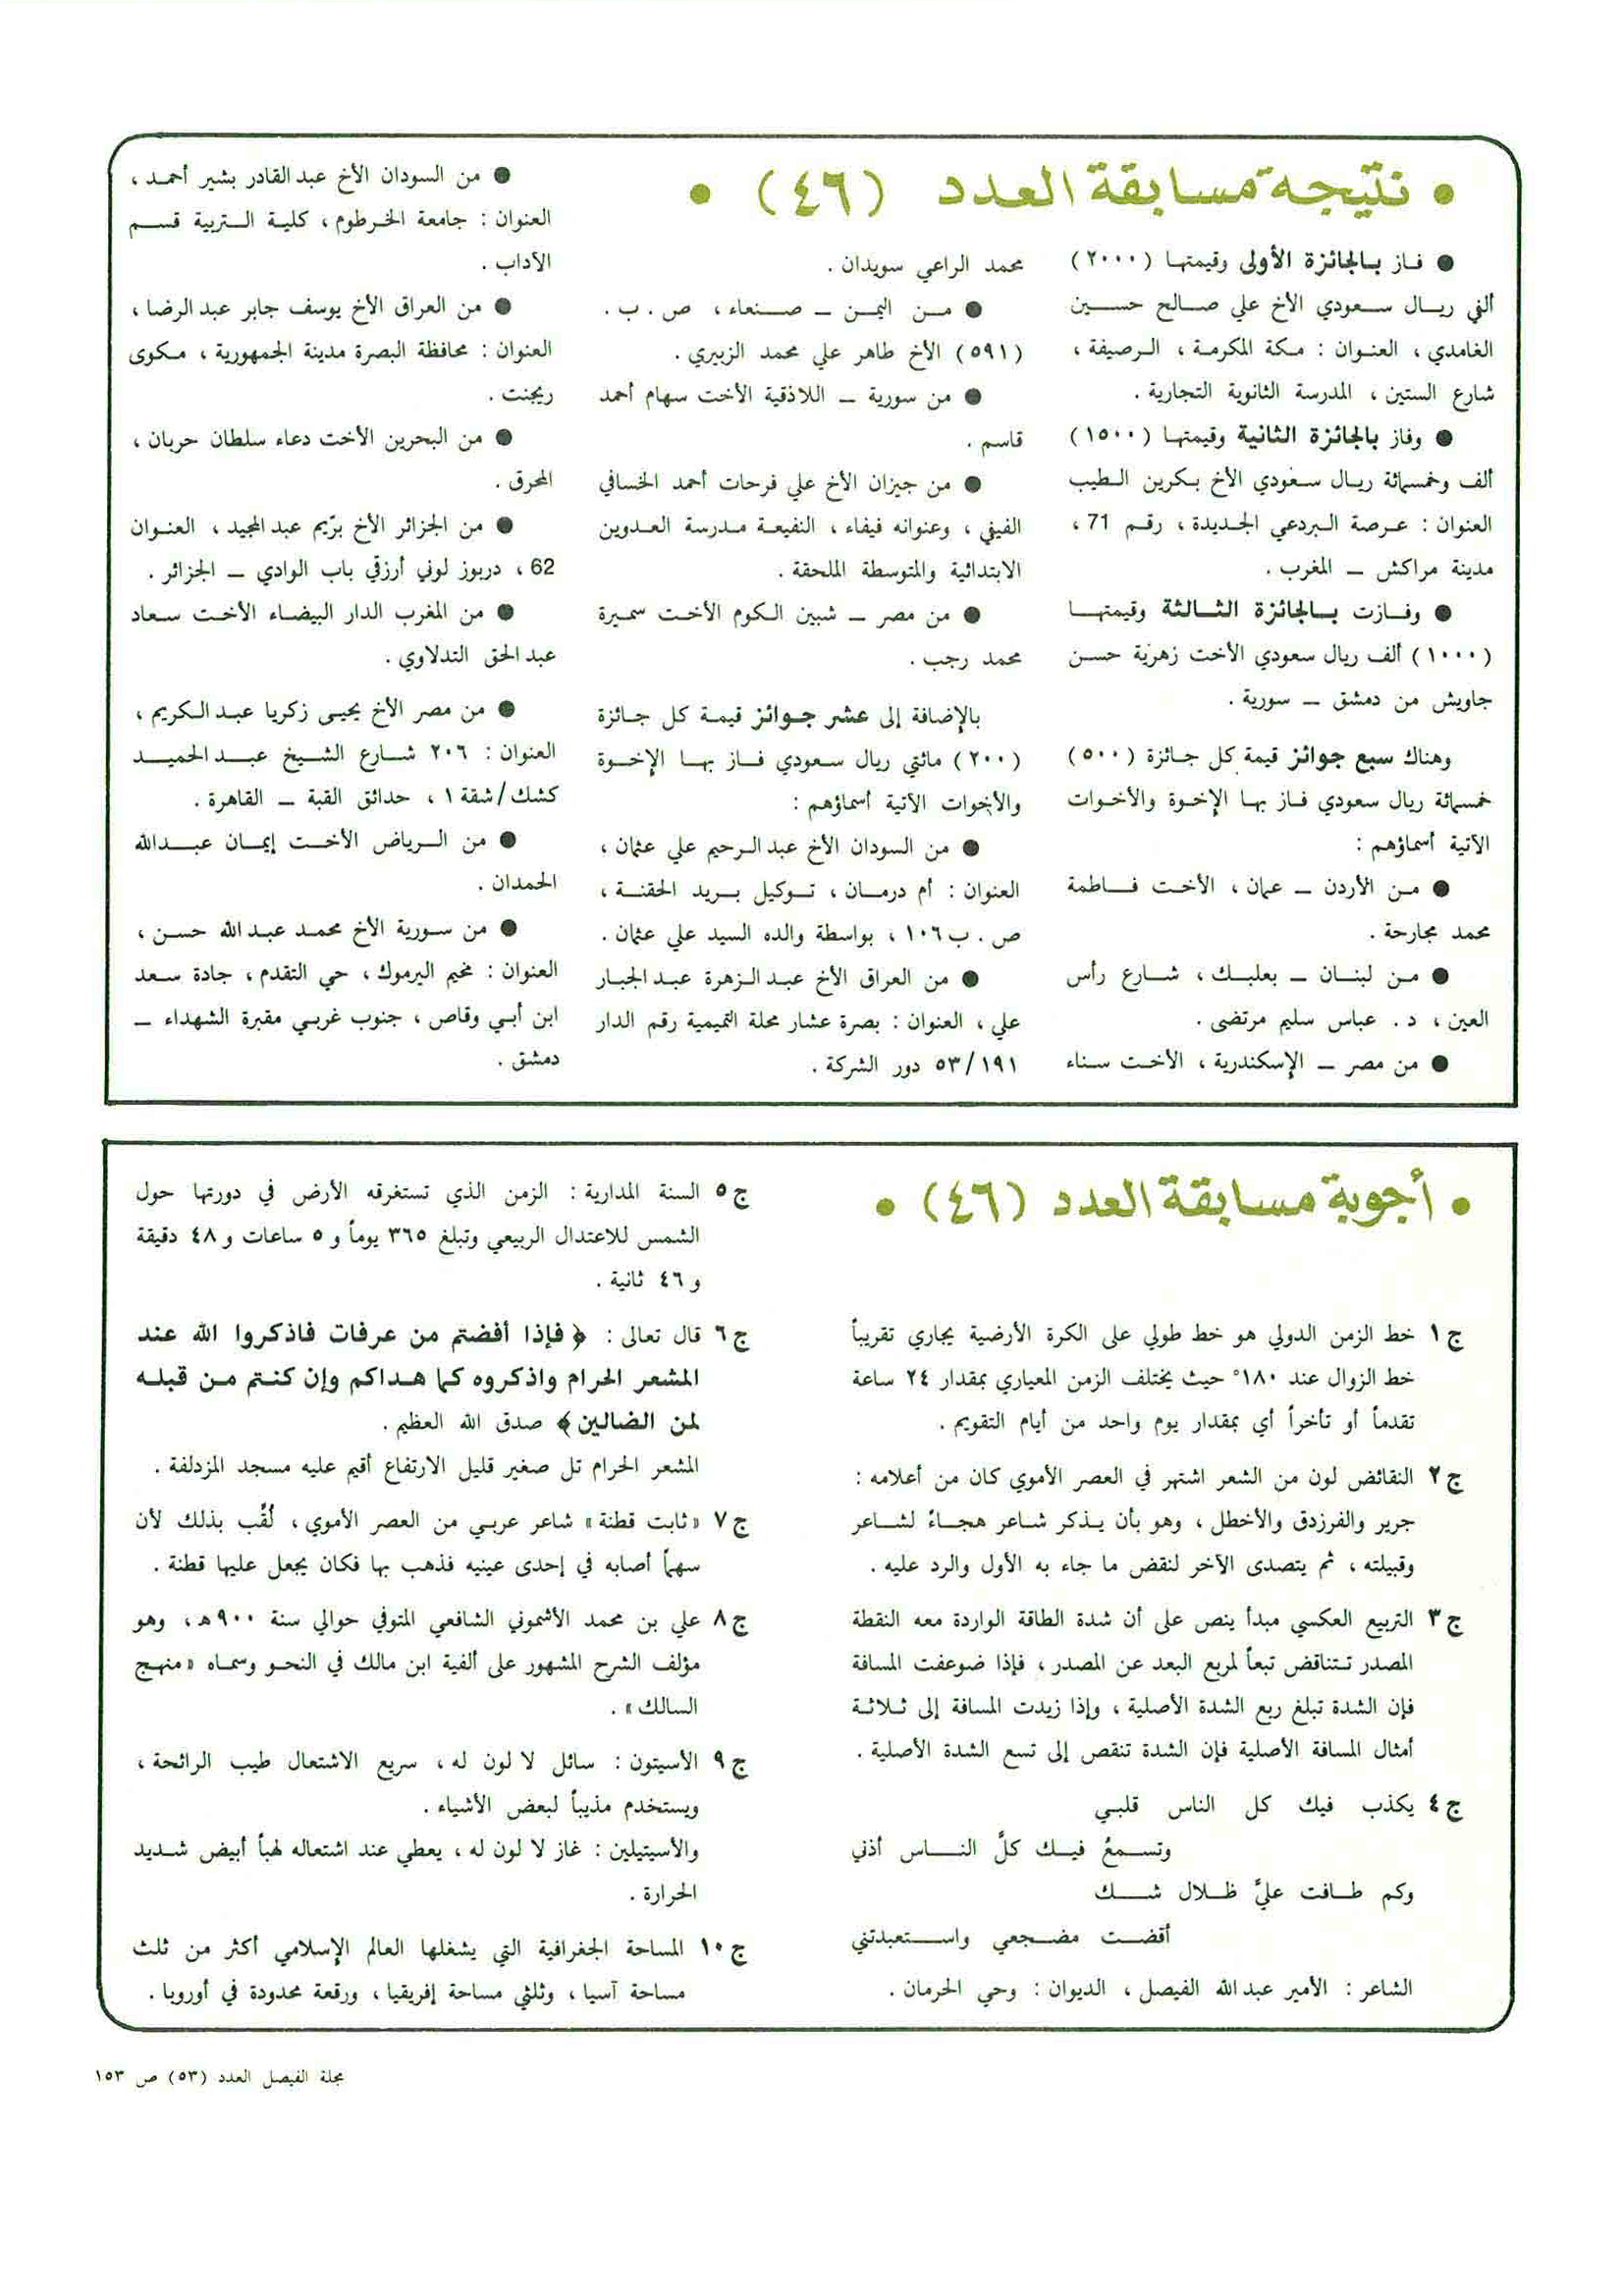 • نتيجة مسابقة العدد (٤٦) •
● فاز بالجائزة الأولى وقيمتها (٢٠٠٠)
ألفي ريال سعودي الأخ علي صالح حسين
الغامدي، العنوان : مكة المكرمة، الرصيفة،
شارع الستين، المدرسة الثانوية التجارية.
● وفاز بالجائزة الثانية وقيمتها (١٥٠٠)
ألف وخمسمائة ريال سعودي الأخ بكرين الطيب
العنوان : عرصة البردعي الجديدة، رقم 71،
مدينة مراكش – المغرب.
● وفازت بالجائزة الثالثة وقيمتها
(١٠٠٠) ألف ريال سعودي الأخت زهرية حسن
جاويش من دمشق – سورية.
وهناك سبع جوائز قيمة كل جائزة (٥٠٠)
خمسمائة ريال سعودي فاز بها الإخوة والأخوات
الآتية أسماؤهم :
● من الأردن – عمان، الأخت فاطمة
محمد مجارحة.
● من لبنان – بعلبك، شارع رأس
العين، د. عباس سليم مرتضى.
● من مصر – الإسكندرية، الأخت سناء
محمد الراعي سويدان.
● من اليمن – صنعاء، ص. ب.
(٥٩١) الأخ طاهر علي محمد الزبيري.
● من سورية – اللاذقية الأخت سهام أحمد
قاسم.
● من جيزان الأخ علي فرحات أحمد الخسافي
الفيفي، وعنوانه فيفاء، النفيعة مدرسة العدوين
الابتدائية والمتوسطة الملحقة.
● من مصر – شبين الكوم الأخت سميرة
محمد رجب.
بالإضافة إلى عشر جوائز قيمة كل جائزة
(٢٠٠) مائتي ريال سعودي فاز بها الإخوة
والأخوات الآتية أسماؤهم :
● من السودان الأخ عبد الرحيم علي عثمان،
العنوان : أم درمان، توكيل بريد الحقنة،
ص. ب ١٠٦، بواسطة والده السيد علي عثمان.
● من العراق الأخ عبد الزهرة عبد الجبار
علي، العنوان : بصرة عشار محلة التميمية رقم الدار
٥٣/١٩١ دور الشركة.
● من السودان الأخ عبد القادر بشير أحمد،
العنوان : جامعة الخرطوم، كلية التربية قسم
الآداب.
● من العراق الأخ يوسف جابر عبد الرضا،
العنوان : محافظة البصرة مدينة الجمهورية، مكوى
ريجنت.
● من البحرين الأخت دعاء سلطان حربان،
المحرق.
● من الجزائر الأخ برّيم عبد المجيد، العنوان
62، دربوز لوني أرزقي باب الوادي – الجزائر.
● من المغرب الدار البيضاء الأخت سعاد
عبد الحق التدلاوي.
● من مصر الأخ يحيى زكريا عبد الكريم،
العنوان : ٢٠٦ شارع الشيخ عبد الحميد
كشك/شقة ١، حدائق القبة – القاهرة.
● من الرياض الأخت إيمان عبدالله
الحمدان.
● من سورية الأخ محمد عبد الله حسن،
العنوان : مخيم اليرموك، حي التقدم، جادة سعد
ابن أبي وقاص، جنوب غربي مقبرة الشهداء –
دمشق.
• أجوبة مسابقة العدد (٤٦) •
ج ١ خط الزمن الدولي هو خط طولي على الكرة الأرضية يجاري تقريباً
خط الزوال عند ١٨٠° حيث يختلف الزمن المعياري بمقدار ٢٤ ساعة
تقدماً أو تأخراً أي بمقدار يوم واحد من أيام التقويم.
ج ٢ النقائض لون من الشعر اشتهر في العصر الأموي كان من أعلامه :
جرير والفرزدق والأخطل، وهو بأن يذكر شاعر هجاءً لشاعر
وقبيلته، ثم يتصدى الآخر لنقض ما جاء به الأول والرد عليه.
ج ٣ التربيع العكسي مبدأ ينص على أن شدة الطاقة الواردة معه النقطة
المصدر تتناقض تبعاً لمربع البعد عن المصدر، فإذا ضوعفت المسافة
فإن الشدة تبلغ ربع الشدة الأصلية، وإذا زيدت المسافة إلى ثلاثة
أمثال المسافة الأصلية فإن الشدة تنقص إلى تسع الشدة الأصلية.
ج ٤ يكذب فيك كل الناس قلبي
وتسمعُ فيك كلَّ الناس أذني
وكم طافت عليَّ ظلال شك
أقضت مضجعي واستعبدتني
الشاعر : الأمير عبد الله الفيصل، الديوان : وحي الحرمان.
ج ٥ السنة المدارية : الزمن الذي تستغرقه الأرض في دورتها حول
الشمس للاعتدال الربيعي وتبلغ ٣٦٥ يوماً و ٥ ساعات و ٤٨ دقيقة
و ٤٦ ثانية.
ج ٦ قال تعالى : ﴿ فإذا أفضتم من عرفات فاذكروا الله عند
المشعر الحرام واذكروه كما هداكم وإن كنتم من قبله
لمن الضالين ﴾ صدق الله العظيم.
المشعر الحرام تل صغير قليل الارتفاع أقيم عليه مسجد المزدلفة.
ج ٧ «ثابت قطنة» شاعر عربي من العصر الأموي، لُقِّب بذلك لأن
سهماً أصابه في إحدى عينيه فذهب بها فكان يجعل عليها قطنة.
ج ٨ علي بن محمد الأشموني الشافعي المتوفي حوالي سنة ٩٠٠ هـ، وهو
مؤلف الشرح المشهور على ألفية ابن مالك في النحو وسماه «منهج
السالك».
ج ٩ الأسيتون : سائل لا لون له، سريع الاشتعال طيب الرائحة،
ويستخدم مذيباً لبعض الأشياء.
والأسيتيلين : غاز لا لون له، يعطي عند اشتعاله لهباً أبيض شديد
الحرارة.
ج ١٠ المساحة الجغرافية التي يشغلها العالم الإسلامي أكثر من ثلث
مساحة آسيا، وثلثي مساحة إفريقيا، ورقعة محدودة في أوروبا.
مجلة الفيصل العدد (٥٣) ص ١٥٣